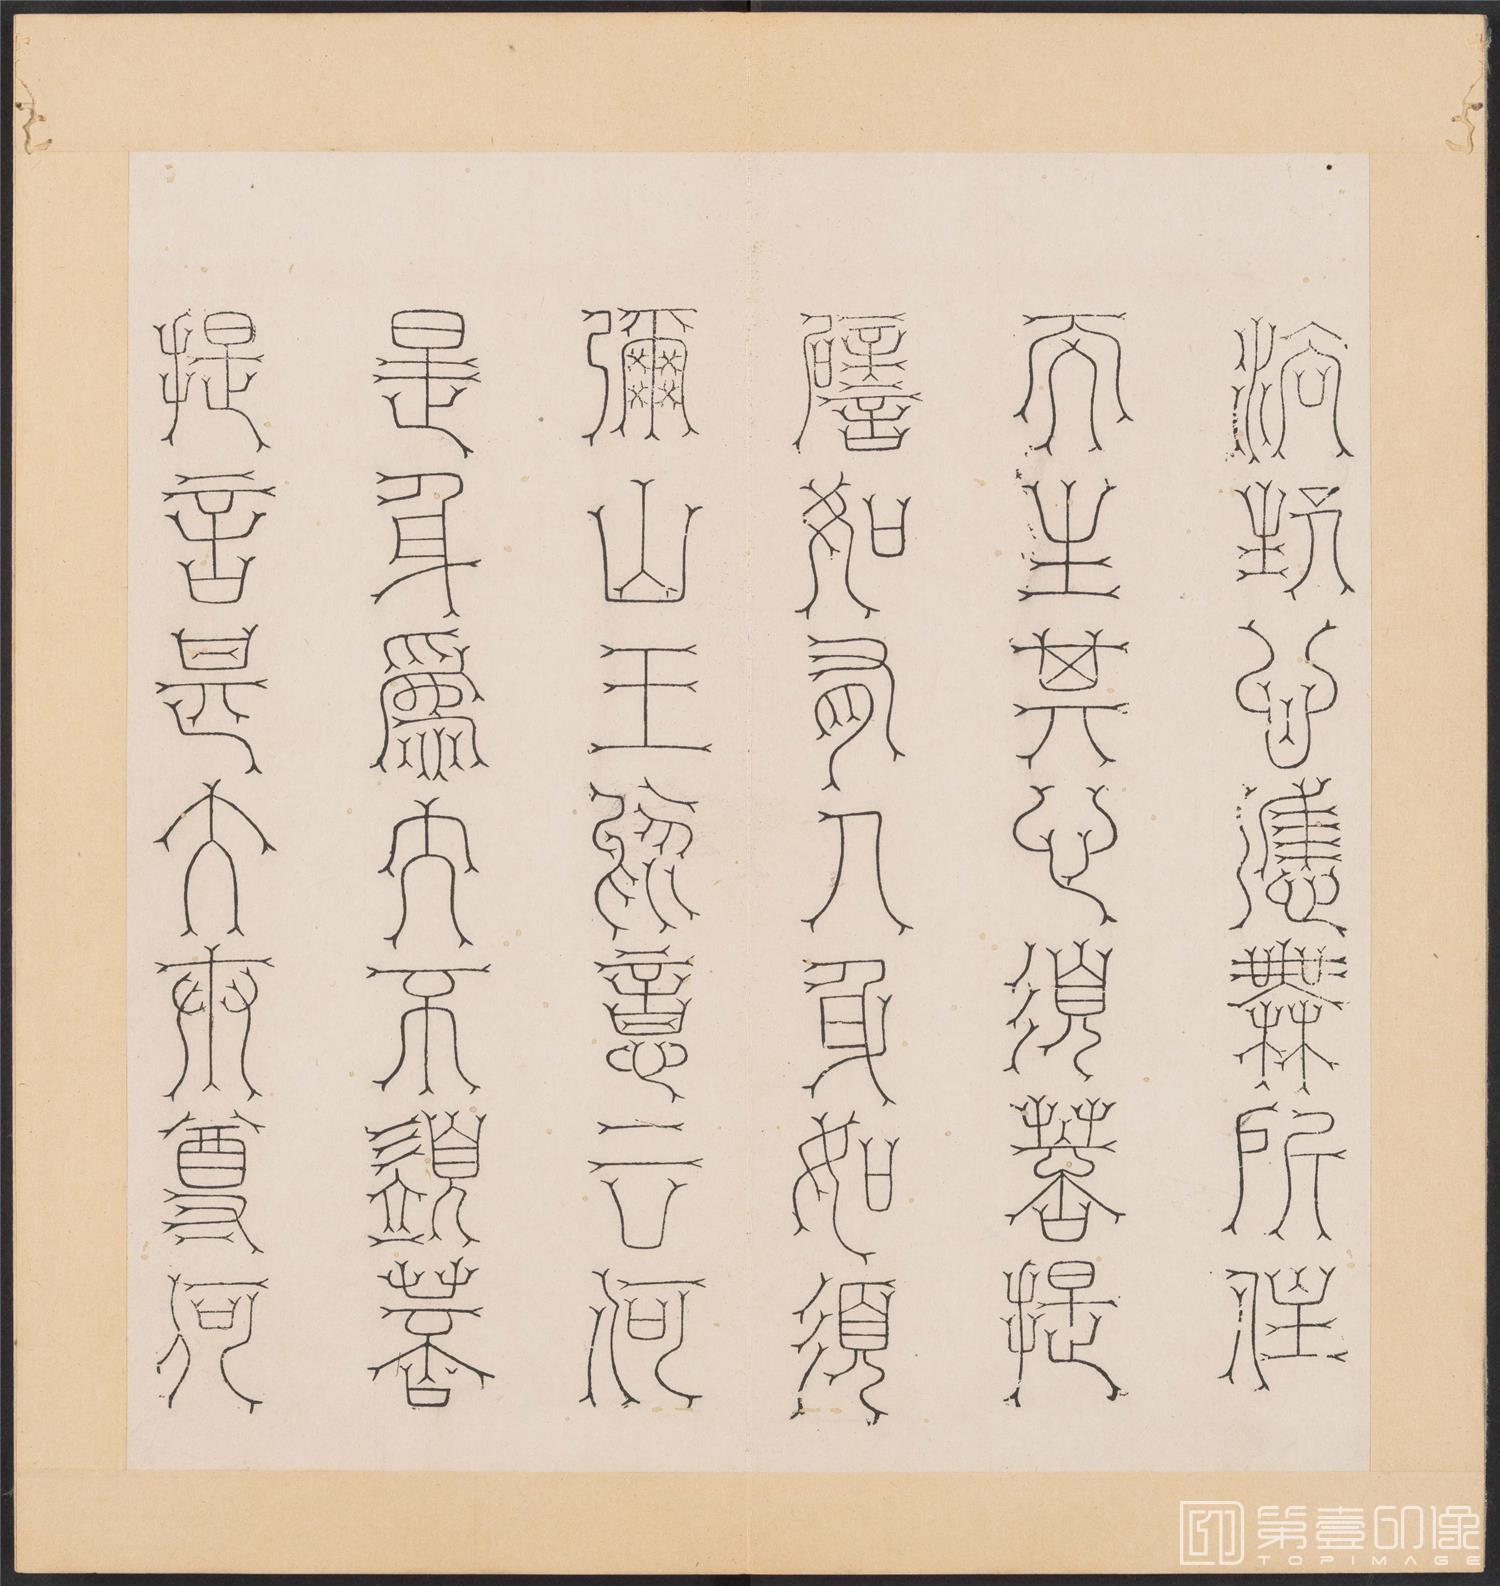 法生心應無所住
而生其心須菩提
譬如有人身如須
彌山王於意云何
是身為大不須菩
提言甚大世尊何
第壹印像
TOPIMAGE